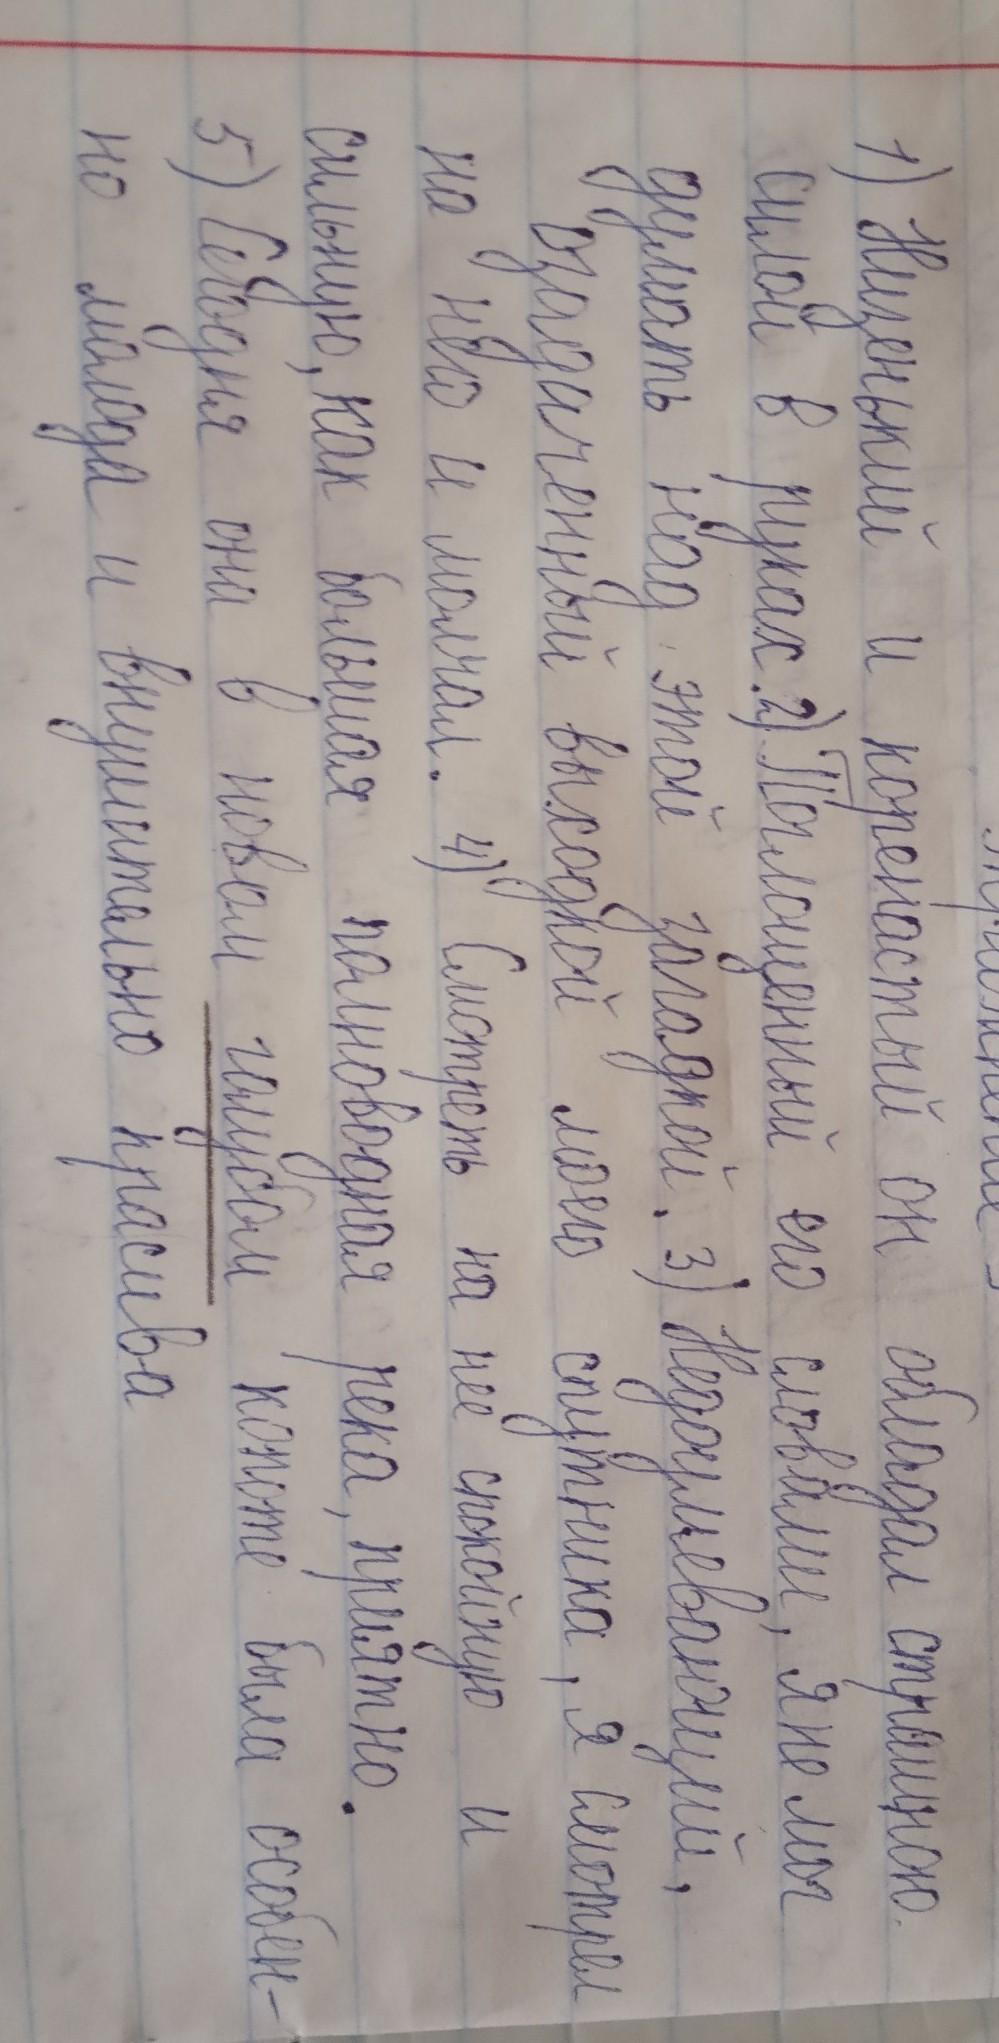 1) Низенький и коренастый он обладал страшною
силой в руках. 2) Поглощенный его словами, я не мог
думать над этой загадкой. 3) Недоумевающий,
озадаченный выходкой моего спутника, я смотрел
на него и молчал. 4) Смотреть на нее спокойную и
сильную, как большая полноводная река, приятно.
5) Сегодня она в новом голубом капоте была особен-
но молода и внушительно красива